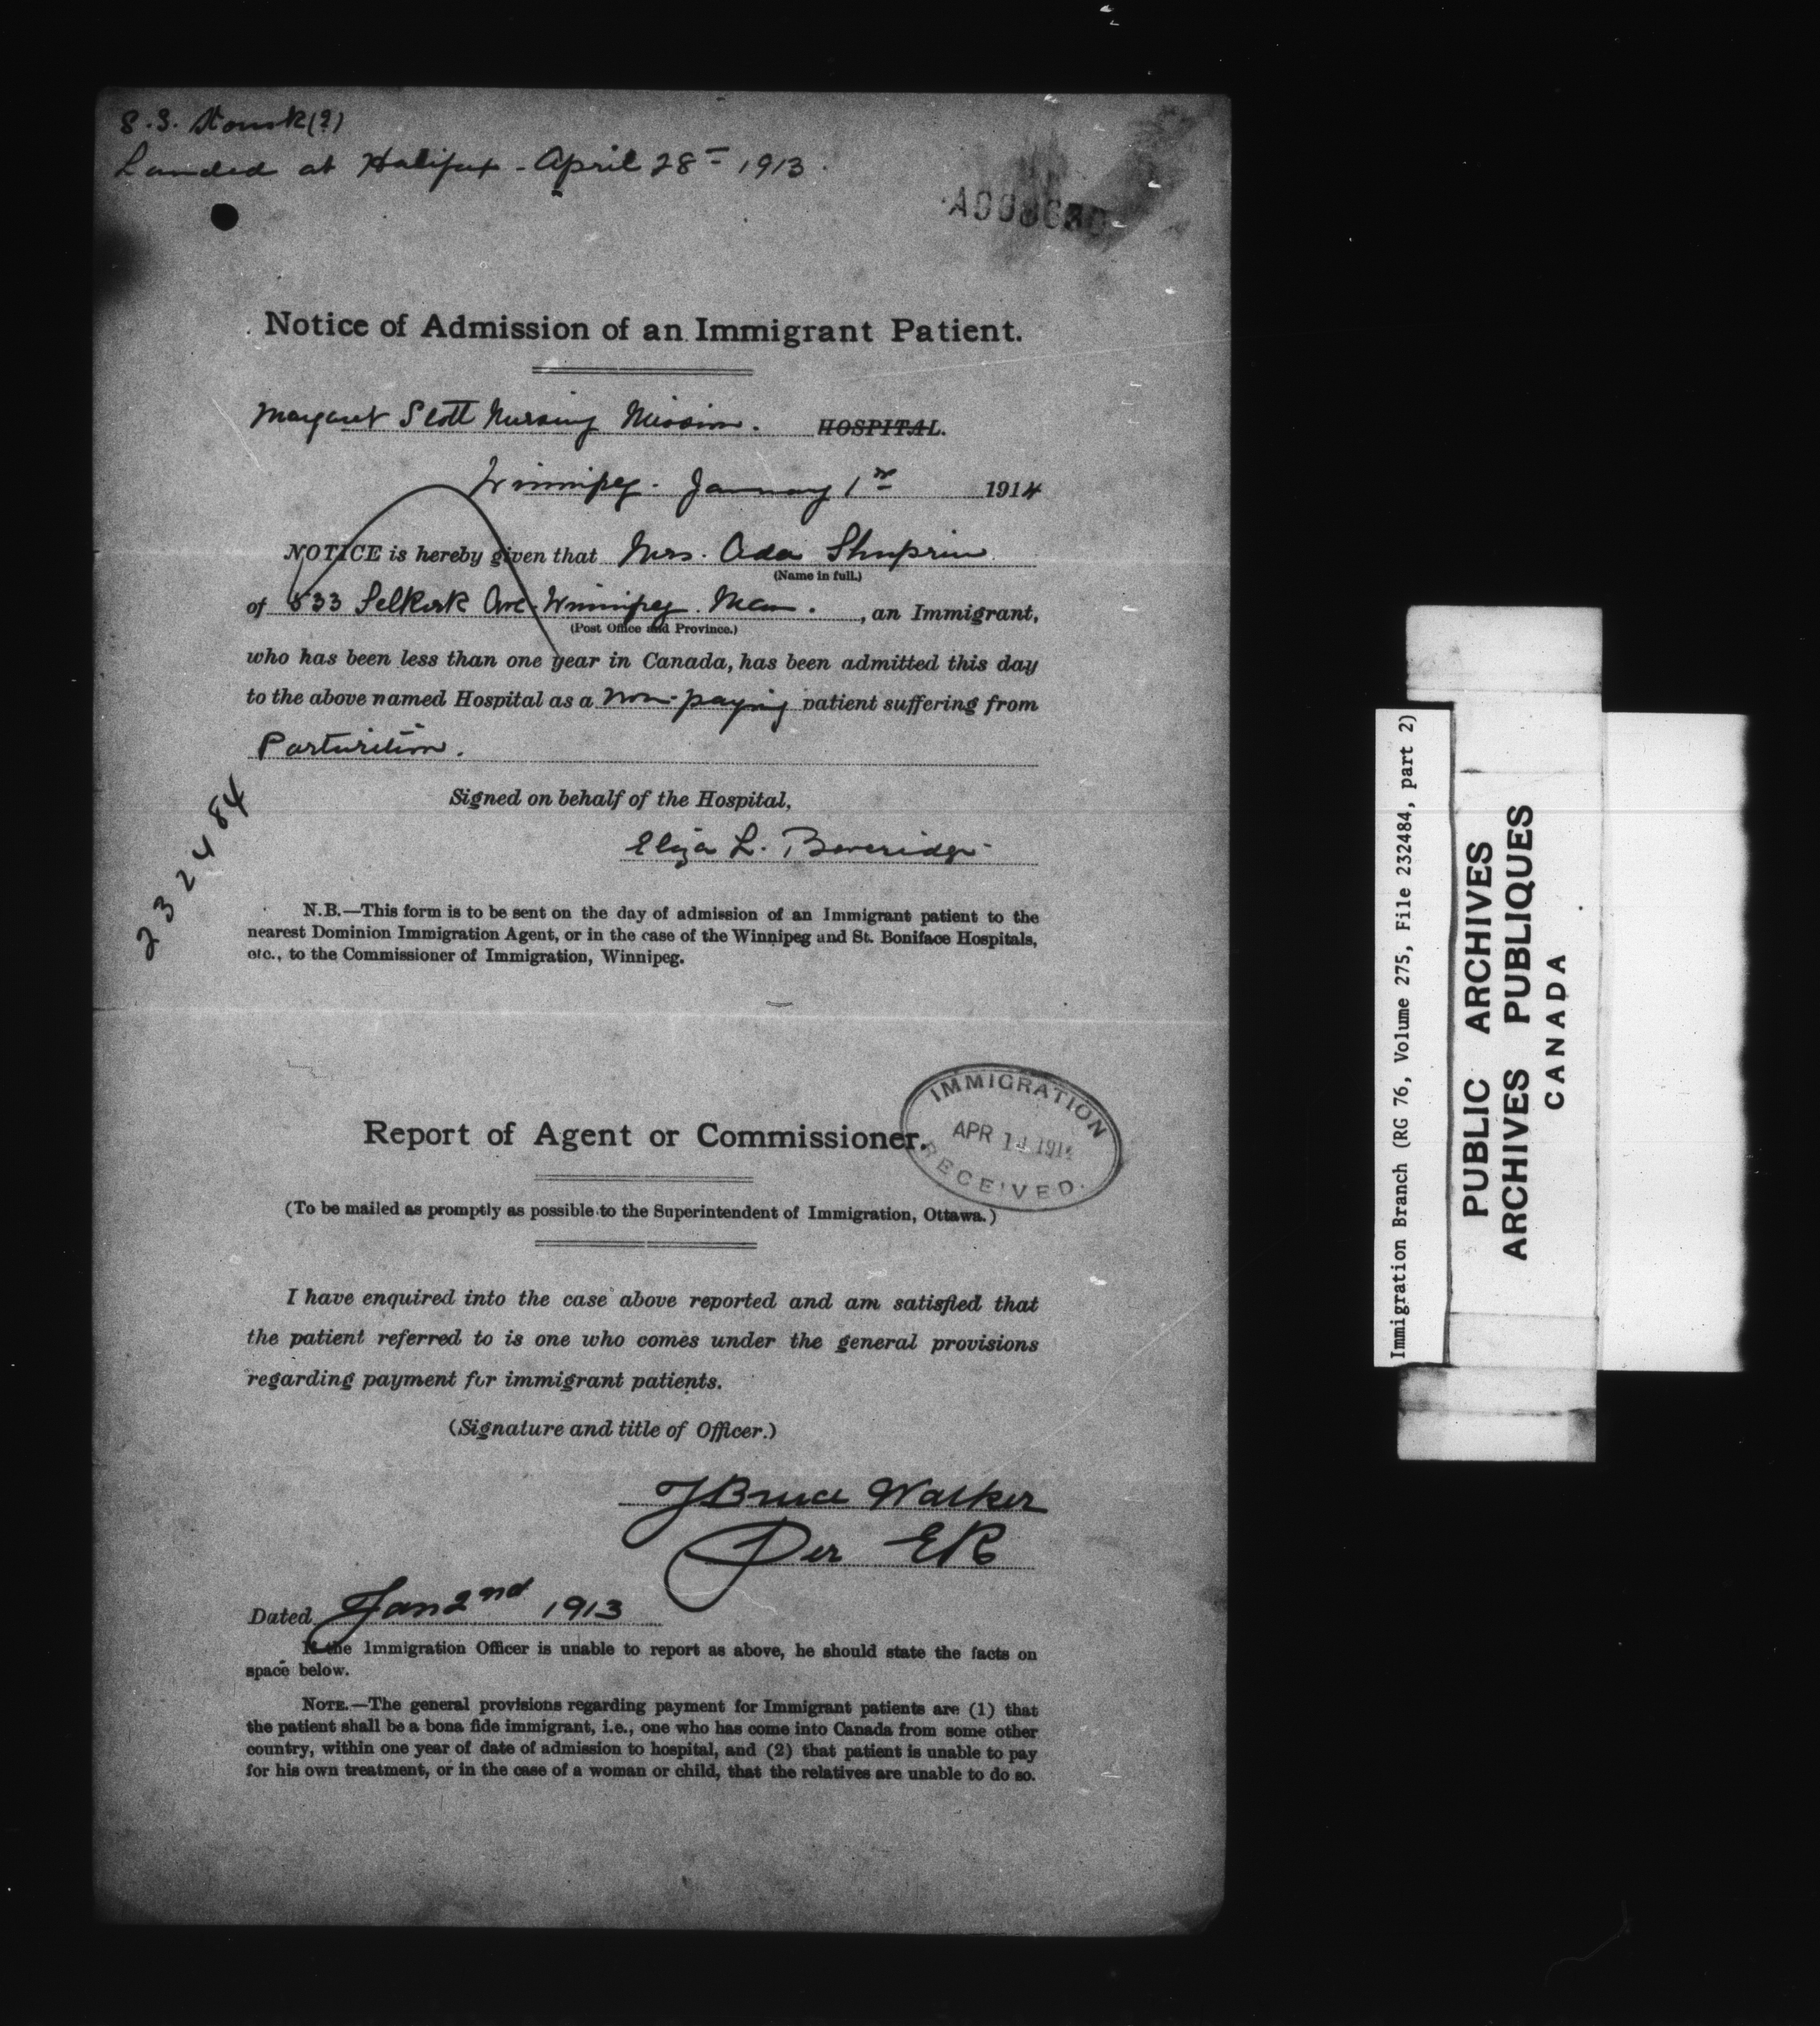 S.S. Stomk(?)
Landed at Halifax - April 28th 1913.
Notice of Admission of an Immigrant Patient.
Margaret Scott Nursing Mission. HOSPITAL.
Winnipeg. January 1st 1914
NOTICE is hereby given that Mrs. Ada Shuprin
(Name in full.)
of 533 Selkirk Ave. Winnipeg. Man. , an Immigrant,
(Post Office and Province.)
who has been less than one year in Canada, has been admitted this day
to the above named Hospital as a non-paying patient suffering from
Parturition.
Signed on behalf of the Hospital,
Eliza L. Beveridge
232484
N.B.—This form is to be sent on the day of admission of an Immigrant patient to the
nearest Dominion Immigration Agent, or in the case of the Winnipeg and St. Boniface Hospitals,
etc., to the Commissioner of Immigration, Winnipeg.
IMMIGRATION
APR 14 1914
RECEIVED.
Report of Agent or Commissioner.
(To be mailed as promptly as possible to the Superintendent of Immigration, Ottawa.)
I have enquired into the case above reported and am satisfied that
the patient referred to is one who comes under the general provisions
regarding payment for immigrant patients.
(Signature and title of Officer.)
J Bruce Walker
Per ER
Dated Jan 2nd 1913
If the Immigration Officer is unable to report as above, he should state the facts on
space below.
NOTE.—The general provisions regarding payment for Immigrant patients are (1) that
the patient shall be a bona fide immigrant, i.e., one who has come into Canada from some other
country, within one year of date of admission to hospital, and (2) that patient is unable to pay
for his own treatment, or in the case of a woman or child, that the relatives are unable to do so.
Immigration Branch (RG 76, Volume 275, File 232484, part 2)
PUBLIC ARCHIVES
ARCHIVES PUBLIQUES
CANADA